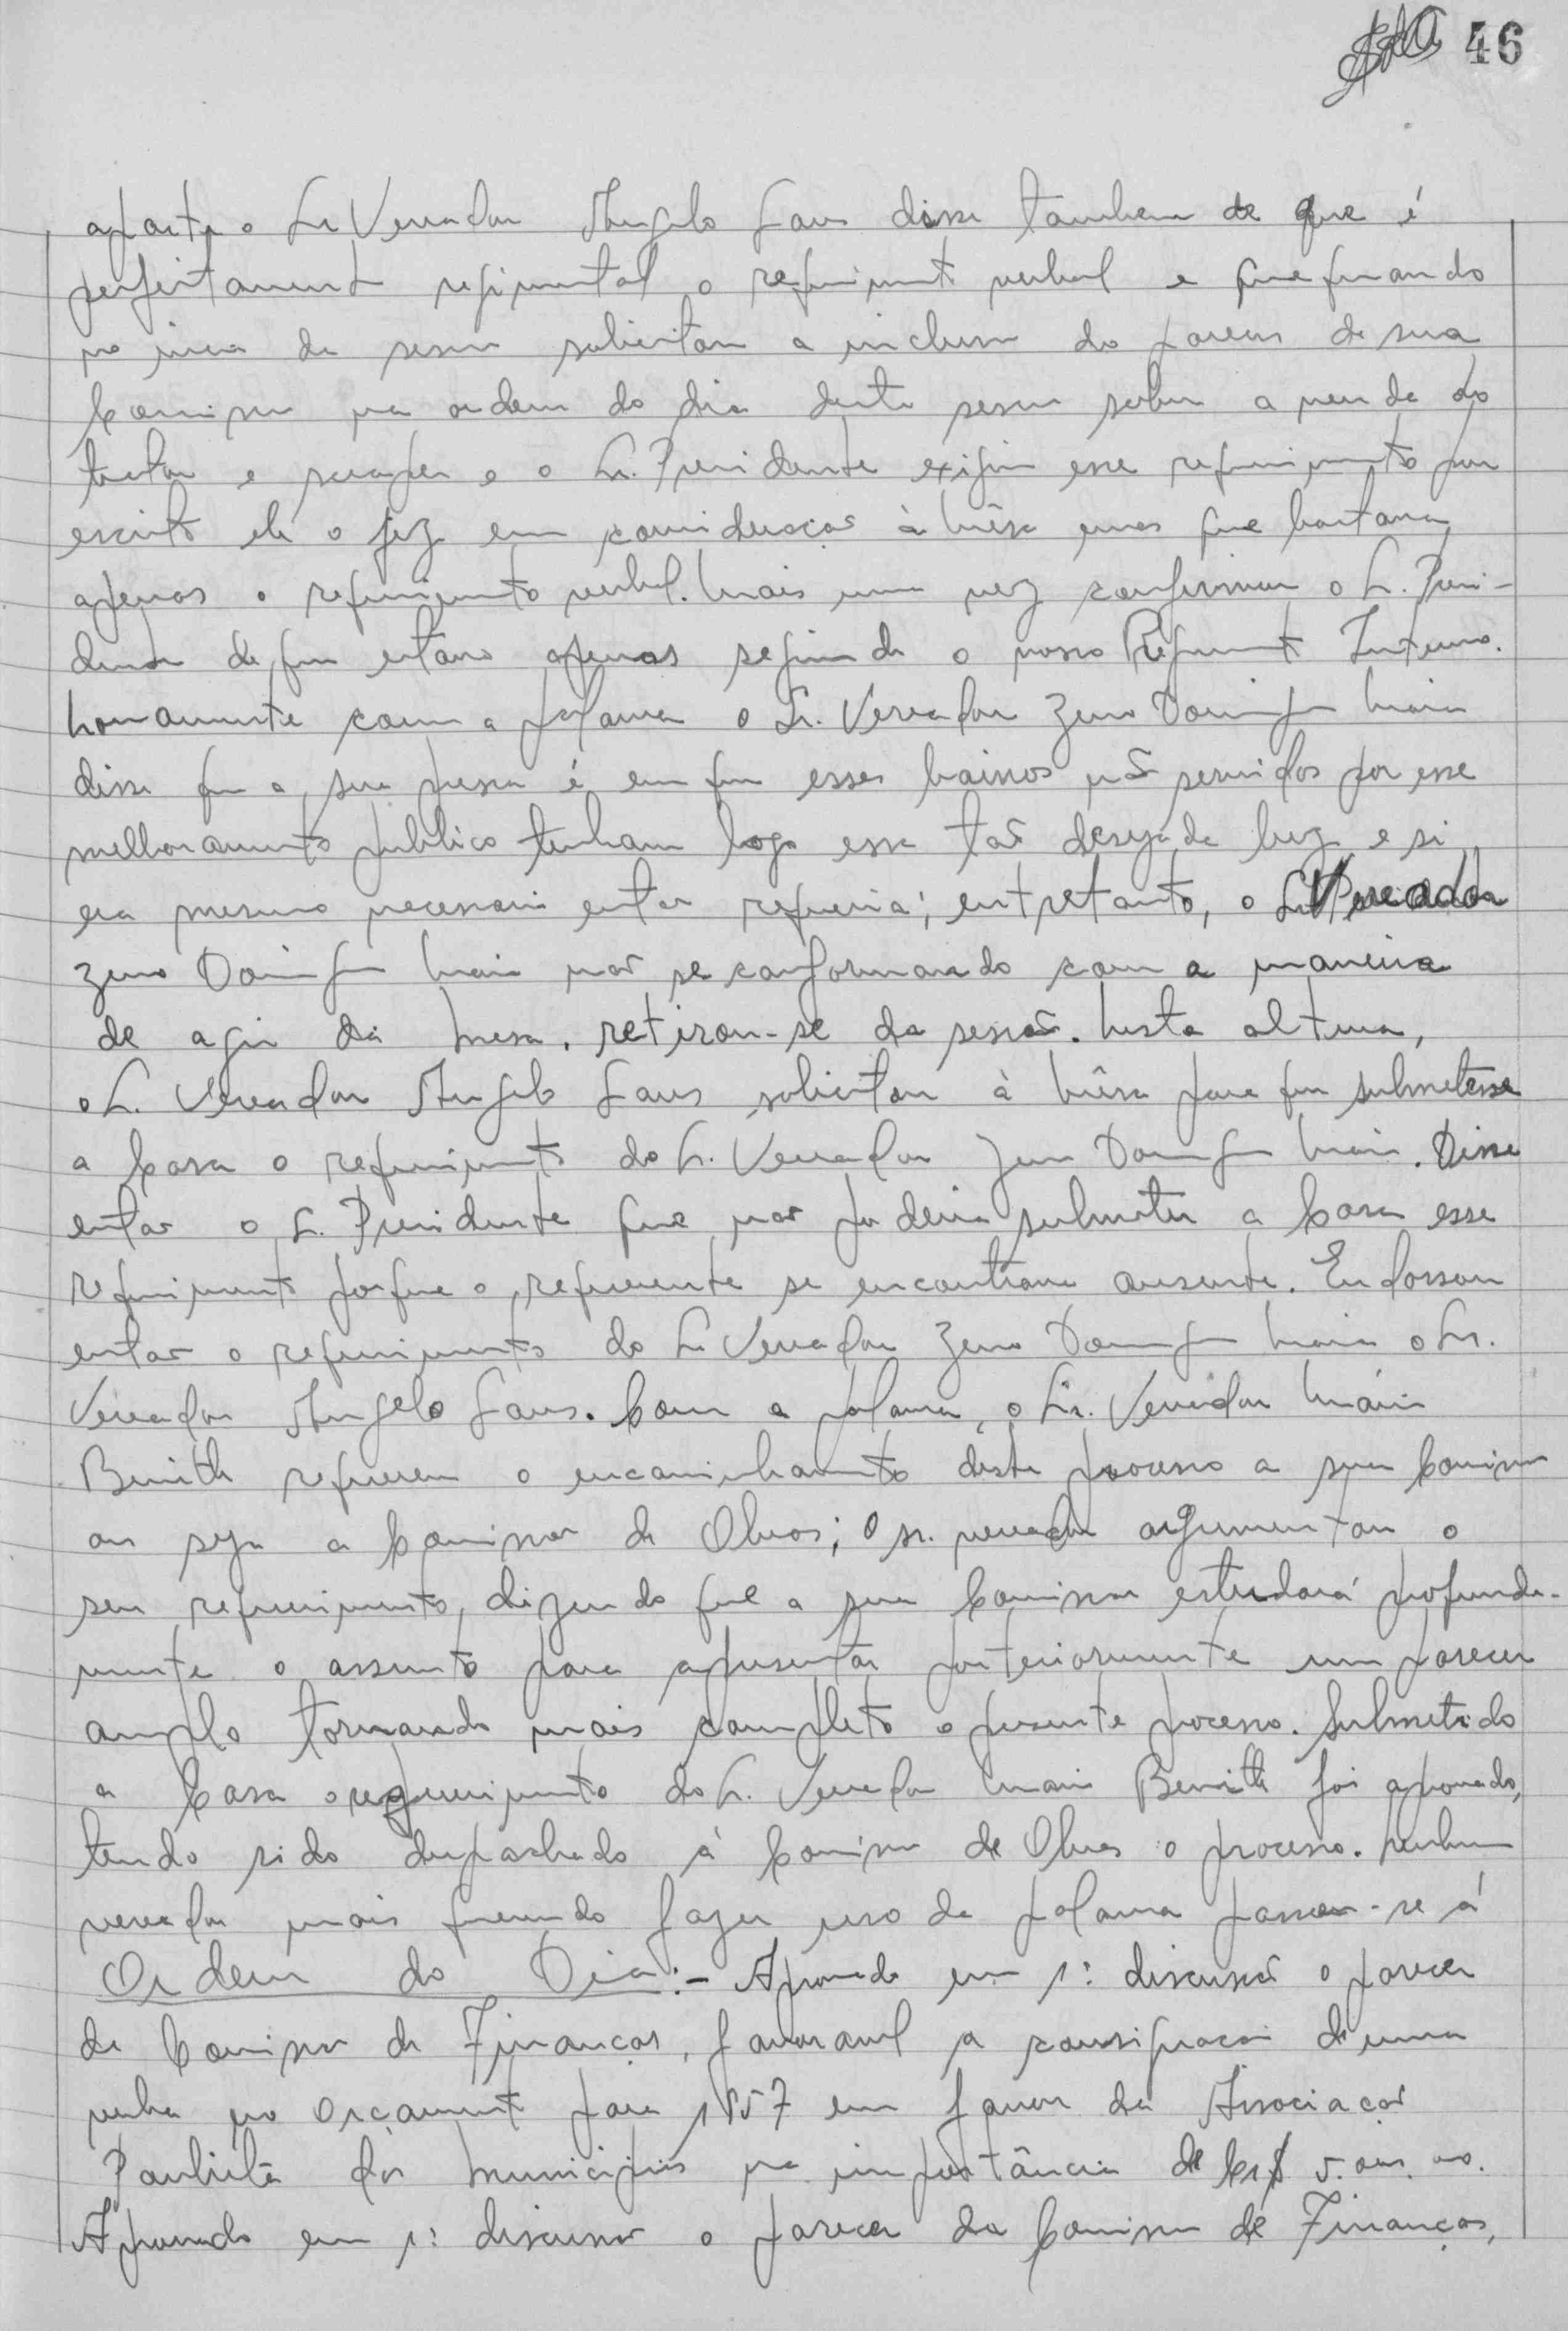 46
aparte o Sr Vereador Angelo Gaus disse tambem de que é
perfeitamente regimental o requerimento verbal e que quando
no inicio da sessão solicitou a inclusão do parecer de sua
Comissão na ordem do dia desta sessão sobre a venda do
trator e o Sr. Presidente exigiu esse requerimento por
escrito ele o fez em consideração à Mêsa mas que bastava
apenas o requerimento verbal. Mais uma vez confirmou o Sr. Presi-
dente de que estava apenas seguindo o nosso Regimento Interno.
Novamente com a palavra o Sr. Vereador Zeno Domingues Maia
disse que a sua pressa é em que esses bairros não servidos por esse
melhoramento publico tenham logo essa tão desejada luz e si
era mesmo necessario então requeria; entretanto, o Sr Vereador
Zeno Domingues Maia não se conformando com a maneira
de agir da Mesa, retirou-se da sessão. Nesta altura,
o Sr. Vereador Angelo Gaus solicitou à Mêsa para que submetesse
a Casa o requerimento do Sr. Vereador Zeno Domingues Maia. Disse
então o Sr. Presidente que não poderia submeter a Casa esse
requerimento porque o requerente se encontrava ausente. Endossou
então o requerimento do Sr Vereador Zeno Domingues Maia o Sr.
Vereador Angelo Gaus. Com a palavra, o Sr. Vereador Mário
requereu o encaminhamento deste processo a sua Comissão
ou seja a Comissão de Obras; O sr. vereador argumentou o
seu requerimento, dizendo que a sua Comissão estudará profunda-
mente o assunto para apresentar posteriormente um parecer
amplo tornando mais completo o presente processo. Submetido
a Casa o requerimento do Sr. Vereador Mario foi aprovado,
tendo sido despachado à Comissão de Obras o processo. Nenhum
vereador mais querendo fazer uso da palavra passou-se á
Ordem do Dia:- Aprovado em 1ª discussão o parecer
da Comissão de Finanças, favoravel a consignação de uma
verba no Orçamento para 1957 em favor da Associação
Paulista dos Municipios na importância de Cr$ 5.000,00.
Aprovado em 1ª discussão o parecer da Comissão de Finanças,